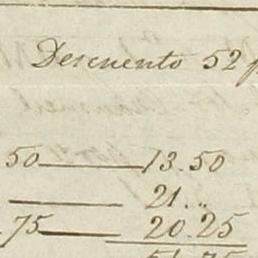 Descuento 52 p
50 — 13.50
— 21 ..
.75 — 20.25
54.75